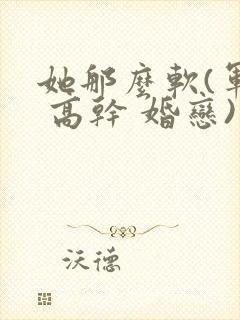 她那麼軟(軍
高幹 婚戀)
沃德